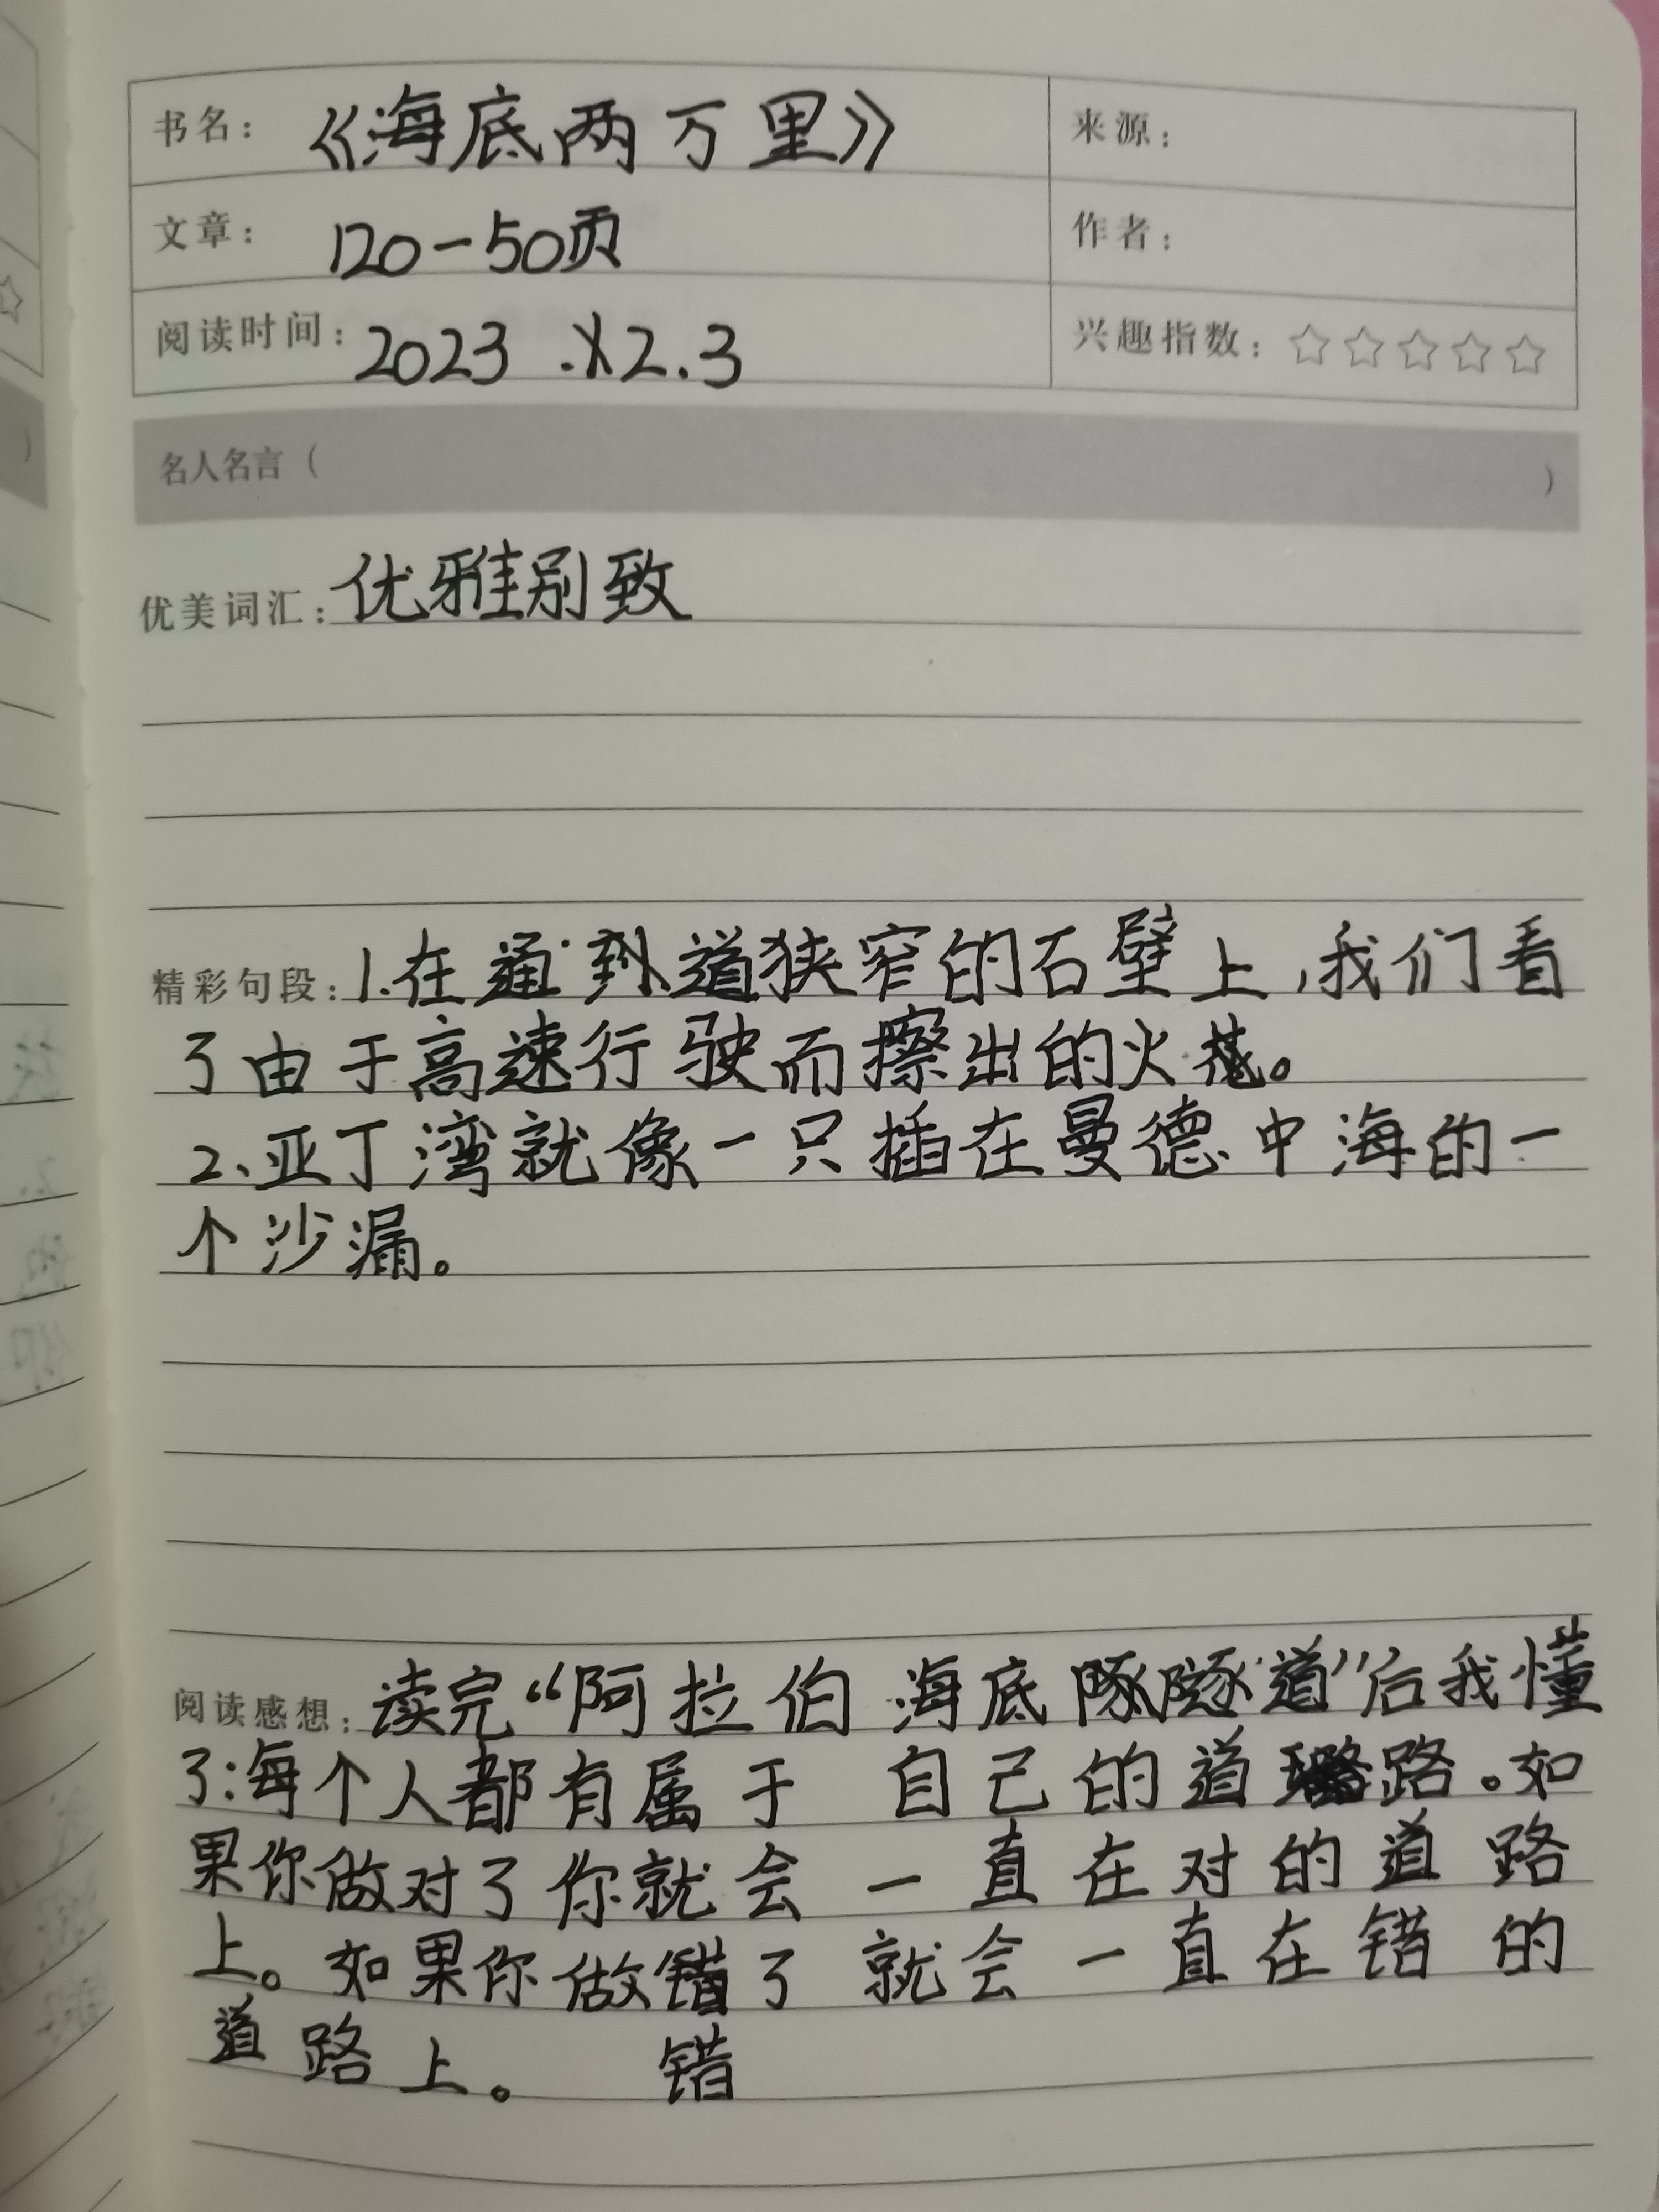 书名：《海底两万里》
来源：
文章：120-50页
作者：
阅读时间：2023.12.3
兴趣指数：☆☆☆☆☆
名人名言（ ）
优美词汇：优雅别致
精彩句段：1.在通到道狭窄的石壁上，我们看
了由于高速行驶而擦出的火花。
2、亚丁湾就像一只插在曼德中海的一
个沙漏。
阅读感想：读完“阿拉伯海底隧道”后我懂
了：每个人都有属于自己的道路。如
果你做对了你就会一直在对的道路
上。如果你做错了就会一直在错的
道路上。 错